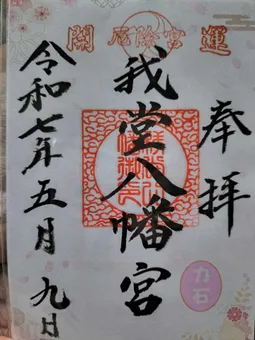 開運厄除宮
奉拝
我堂八幡宮
令和七年五月九日
力石